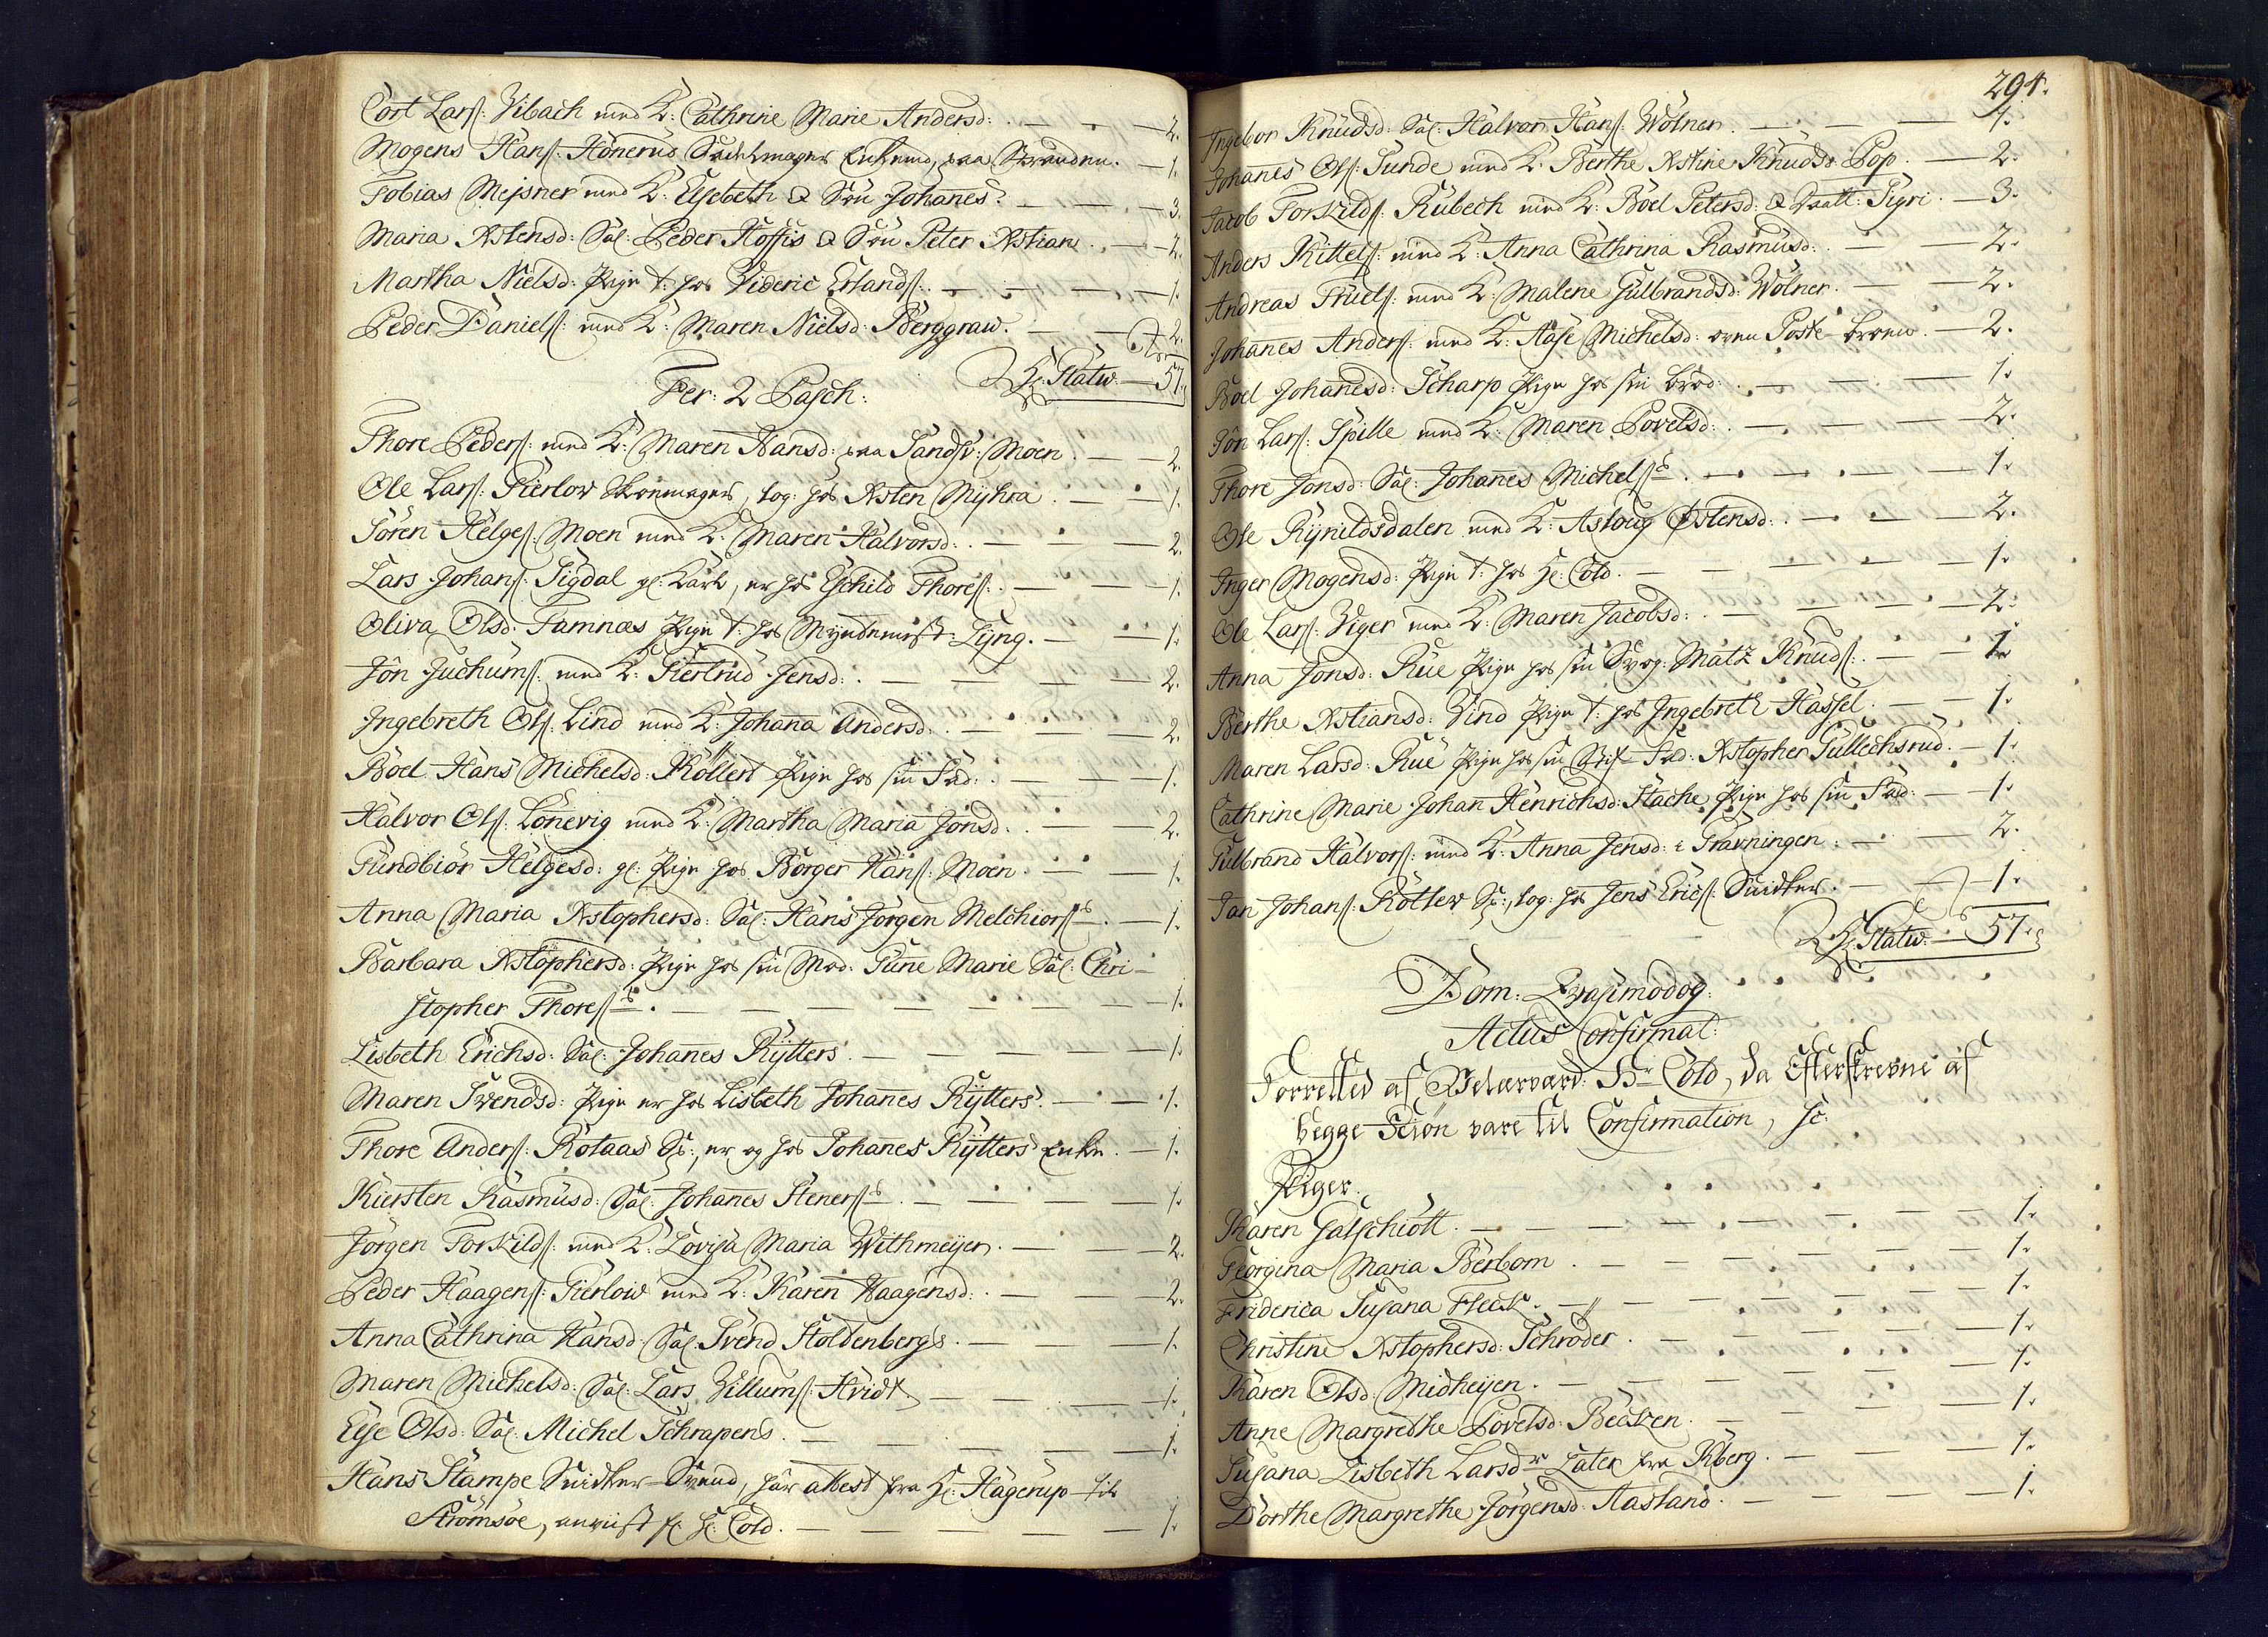 Cort Larſ: Vibach med K: Cathrine Marie Andersd: — 2.
Mogens Hanſ: Hönerud Sadelmager Enkemd, paa Stranden. — 1.
Tobias Mejsner med K: Elsebeth & Sön Johanes. — 3.
Maria Xstensd: Sal: Peder Hoffis & Sön Peter Xstian — 2.
Martha Nielsd: Pige t: hos Erlandſ: — 1.
Peder Danielſ: med K: Maren Nielsd: Berggraw. — 2.
Hr: Statw. — 57.
Fer: 2 Pasch:
Thore Pederſ: med K: Maren Hansd: paa Sandsv: Moen. — 2.
Ole Larſ: Gierlow Skoemager, log: hos Xsten Myhra. — 1.
Sören Helgeſ: Moen med K: Maren Halvorsd: — 2.
Lars Johanſ: Sigdal gl: Karl, er hos Eschild Thoreſ: — 1.
Oliva Olsd: Tamnæs Pige t: hos Myndtmest: Lyng. — 1.
Jön Juchumſ: med K: Giertrud Jensd: — 2.
Ingebreth Olſ: Lind med K: Johana Andersd: — 2.
Boel Hans Michelsd: Köllert Pige hos sin Fad: — 1.
Halvor Olſ: Lönevig med K: Martha Maria Jonsd. — 2.
Gundbiör Helgesd: gl: Pige hos Börger Hanſ: Moen. — 1.
Anna Maria Xstophersd: Sal: Hans Jörgen Melchiorſs — 1.
Barbara Xstophersd: Pige hos sin Mod: Gune Marie Sal: Chri-
stopher Thoreſs. — 1.
Lisbeth Erichsd: Sal: Johanes Rÿtters. — 1.
Maren Svendsd: Pige er hos Lisbeth Johanes Rÿtters. — 1.
Thore Anderſ: Rotaas Sv:, er og hos Johanes Rÿtters Enke. — 1.
Kiersten Rasmusd: Sal: Johanes Stenerſs. — 1.
Jörgen Torkildſ: med K: Lovisa Maria Withmeÿer. — 2.
Peder Haagenſ: Gierlow med K: Karen Haagensd: — 2.
Anna Cathrina Hansd: Sal: Svend Stoldenbergs. — 1.
Maren Michelsd: Sal: Lars Villumſ: Hvidt — 1.
Else Olsd: Sal: Michel Schrapens. — 1.
Hans Stampe Snidker-Svend, har attest fra Hr: Hagerup til
Strömsöe, anviist fr: Hr: Cold. — 1.
294.
Ingebor Knudsd: Sal: Halvor Hanſ: Wölner. — 1.
Johanes Olſ: Sunde med K: Berthe Xstine Knudsd: Pop. — 2.
Jacob Torkildſ: Rubech med K: Boel Petersd: & Daatt: Sigri. — 3.
Anders Kittelſ: med K: Anna Cathrina Rasmusd: — 2.
Andreas Truelſ: med K: Malene Gulbrandsd: Wölner. — 2.
Johanes Anderſ: med K: Aase Michelsd: oven Poste-broen. — 2.
Boel Johanesd: Scharp Pige hos sin brod: — 1.
Jön Larſ: Spille med K: Maren Povelsd: — 2.
Thore Jonsd: Sal: Johanes Michelſs. — 1.
Ole Rÿnildsdalen med K: Asloug Östensd: — 2.
Inger Mogensd: Pige t: hos Hr: Cold. — 1.
Ole Larſ: Viger med K: Maren Jacobsd: — 2.
Anna Jonsd: Rue Pige hos sin Svog: Matz Knudſ: — 1.
Berthe Xstiansd: Vind Pige t: hos Ingebreth Hassel. — 1.
Maren Larsd: Rue Pige hos sin Stif-Fad: Xstopher Gullechsrud. — 1.
Cathrine Marie Johan Henrichsd: Stache Pige hos sin Fad: — 1.
Gulbrand Halvorſ: med K: Anna Jensd: i Gravningen. — 2.
Jan Johanſ: Kötler Sv:, log: hos Jens Ericſ: Snidker. — 1.
Hr: Statw. — 57.
Dom: Qvasimodog:
Actus Confirmat:
Forretted af Velærværd: Hr Cold, da Efterskrevne af
begge Kiön vare til Confirmation, sc:
Piger.
Karen Galschiött. — 1.
Georgina Maria Berbom. — 1.
Friderica Susana Fleck. — 1.
Christine Xstophersd: Schröder. — 1.
Karen Olsd: Midheÿen. — 1.
Anne Margrethe Povelsd: Becken. — 1.
Susana Lisbeth Larsdr Later fra Kberg. — 1.
Dorthe Margrethe Jörgensd: Aasland. — 1.